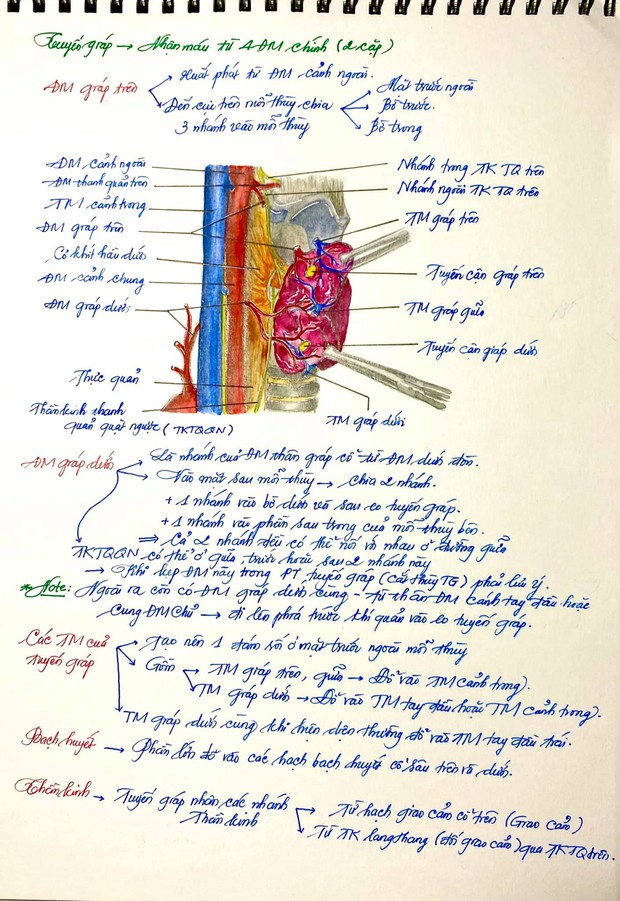 Tuyến giáp → Nhận máu từ 4 ĐM chính (2 cặp)
ĐM giáp trên
Xuất phát từ ĐM cảnh ngoài.
Đến cực trên mỗi thùy chia
3 nhánh vào mỗi thùy
Mặt trước ngoài
Bờ trước.
Bờ trong
ĐM cảnh ngoài
ĐM thanh quản trên
TM cảnh trong
ĐM giáp trên
Cơ khít hầu dưới
ĐM cảnh chung
ĐM giáp dưới
Thực quản
Thần kinh thanh
quản quặt ngược (TKTQQN)
Nhánh trong TK TQ trên
Nhánh ngoài TK TQ trên
TM giáp trên
Tuyến cận giáp trên
TM giáp giữa
Tuyến cận giáp dưới
TM giáp dưới
ĐM giáp dưới
Là nhánh của ĐM thân giáp cổ từ ĐM dưới đòn.
Vào mặt sau mỗi thùy → chia 2 nhánh.
+ 1 nhánh vào bờ dưới và sau eo tuyến giáp.
+ 1 nhánh vào phần sau trong của mỗi thùy bên.
⇒ Cả 2 nhánh đều có thể nối với nhau ở đường giữa
TKTQQN có thể ở giữa, trước hoặc sau 2 nhánh này
→ Khi kẹp ĐM này trong PT tuyến giáp (Cắt thùy TG) phải lưu ý.
* Note: Ngoài ra còn có ĐM giáp dưới cùng - từ thân ĐM cánh tay đầu hoặc
cung ĐM chủ → đi lên phía trước khí quản vào eo tuyến giáp.
Các TM của
tuyến giáp
Tạo nên 1 đám rối ở mặt trước ngoài mỗi thùy
Gồm
TM giáp trên, giữa → Đổ vào TM cảnh trong).
TM giáp dưới → Đổ vào TM tay đầu hoặc TM cảnh trong).
TM giáp dưới cùng khi hiện diện thường đổ vào TM tay đầu trái.
Bạch huyết → Phần lớn đổ vào các hạch bạch huyết cổ sâu trên và dưới.
Thần kinh → Tuyến giáp nhận các nhánh
Thần kinh
Từ hạch giao cảm cổ trên (Giao cảm)
Từ TK lang thang (đối giao cảm) qua TKTQ trên.